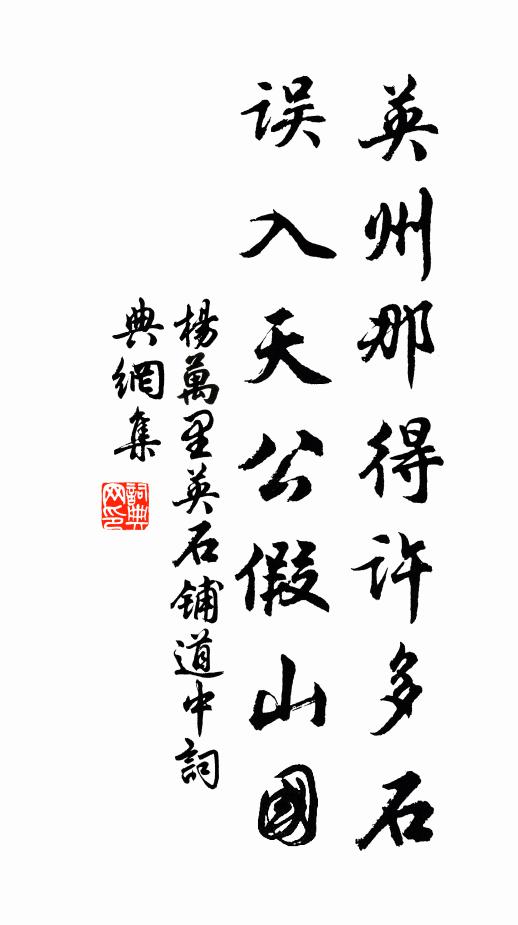 英州那得许多石
误入天公假山國
楊萬里英石铺道中詞
典網集
詞典网印